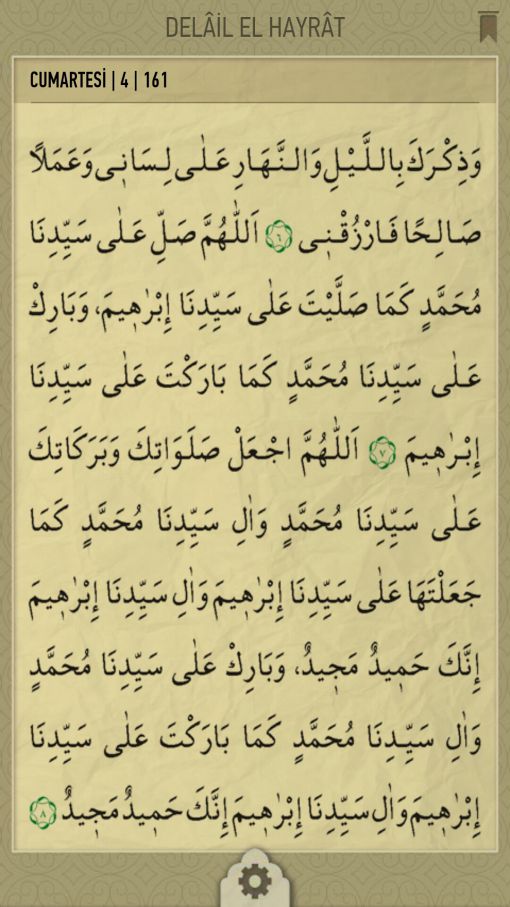 DELÂİL EL HAYRÂT
CUMARTESİ | 4 | 161
وَذِكْرَكَ بِاللَّيْلِ وَالنَّهَارِ عَلٰى لِسَانٖى وَعَمَلًا
صَالِحًا فَارْزُقْنٖى ٦ اَللّٰهُمَّ صَلِّ عَلٰى سَيِّدِنَا
مُحَمَّدٍ كَمَا صَلَّيْتَ عَلٰى سَيِّدِنَا إِبْرٰهٖيمَ، وَبَارِكْ
عَلٰى سَيِّدِنَا مُحَمَّدٍ كَمَا بَارَكْتَ عَلٰى سَيِّدِنَا
إِبْرٰهٖيمَ ٧ اَللّٰهُمَّ اجْعَلْ صَلَوَاتِكَ وَبَرَكَاتِكَ
عَلٰى سَيِّدِنَا مُحَمَّدٍ وَاٰلِ سَيِّدِنَا مُحَمَّدٍ كَمَا
جَعَلْتَهَا عَلٰى سَيِّدِنَا إِبْرٰهٖيمَ وَاٰلِ سَيِّدِنَا إِبْرٰهٖيمَ
إِنَّكَ حَمٖيدٌ مَجٖيدٌ، وَبَارِكْ عَلٰى سَيِّدِنَا مُحَمَّدٍ
وَاٰلِ سَيِّدِنَا مُحَمَّدٍ كَمَا بَارَكْتَ عَلٰى سَيِّدِنَا
إِبْرٰهٖيمَ وَاٰلِ سَيِّدِنَا إِبْرٰهٖيمَ إِنَّكَ حَمٖيدٌ مَجٖيدٌ ٨